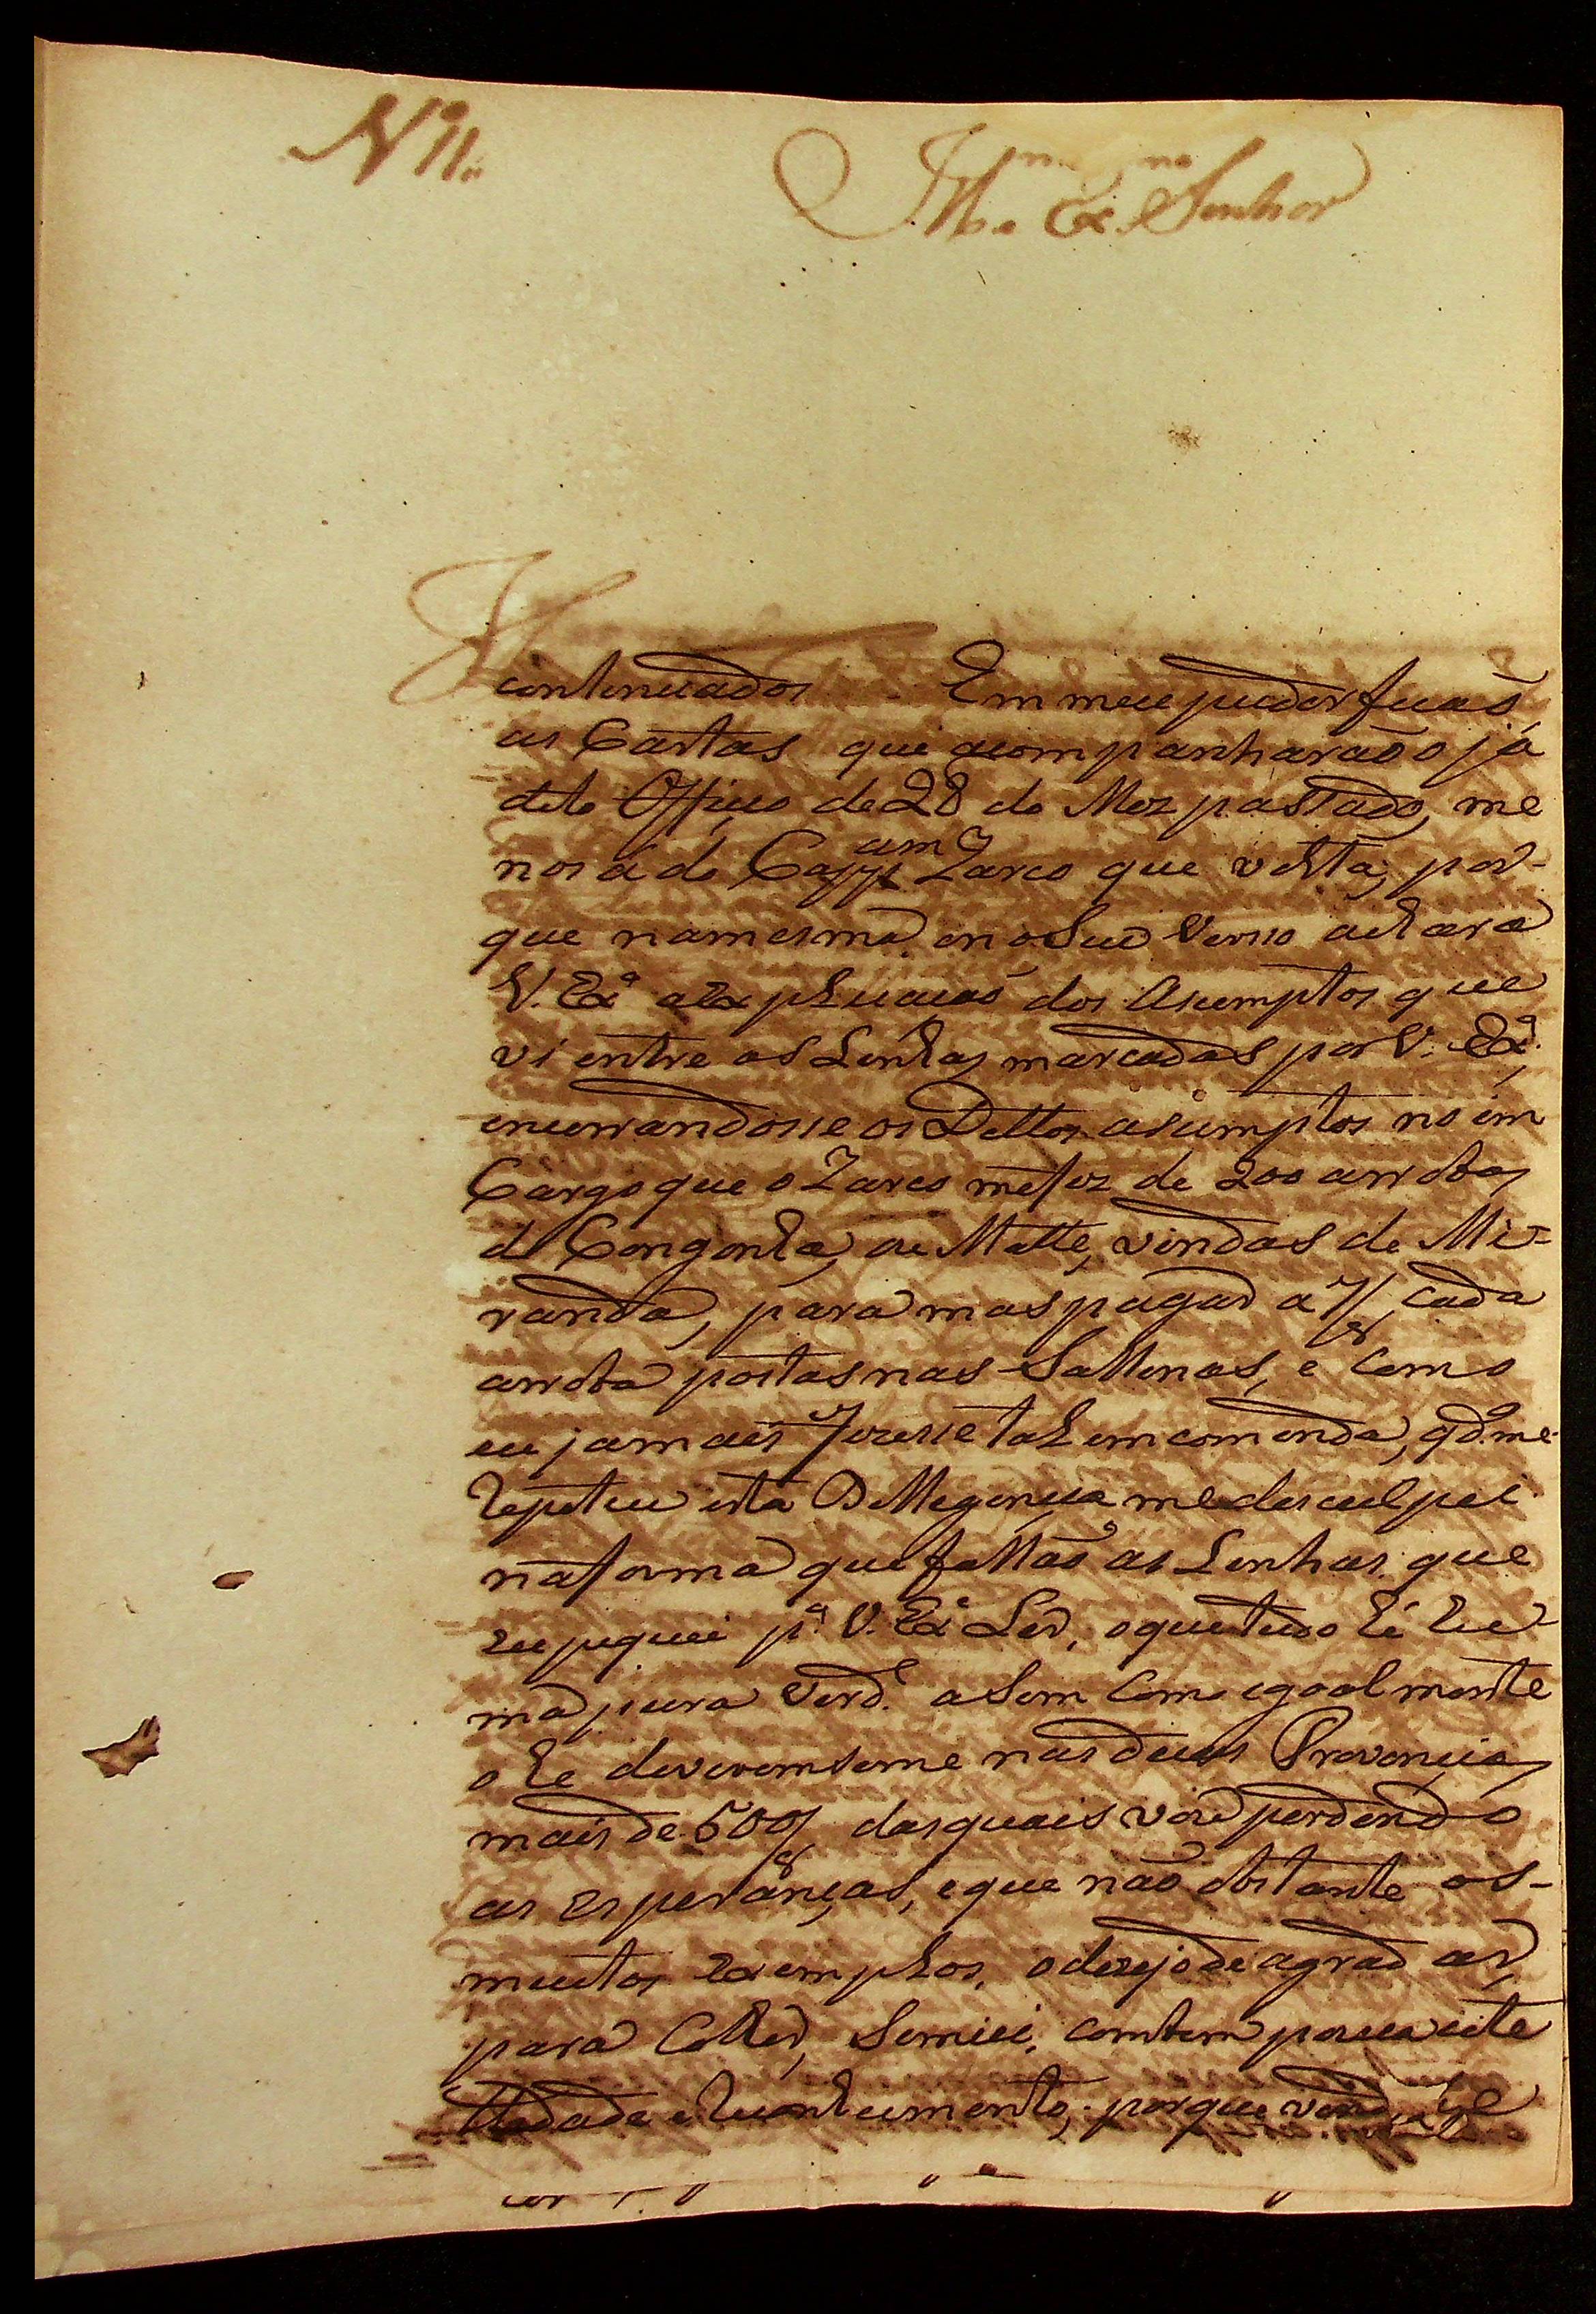 N 11.
Ill.mo Ex.mo Senhor
continuados Em meu puder ficaõ
as Cartas que acompanharaõ o já
dito Officio de 28 do Mez passado, me
nos a do Cappam Zarco que volta, por-
que na mesma e no Seu Verso achara
V. Exa a Explicacaõ dos Asumptos que
vi entre as Linhas marcadas por V. Exa,
encerrandosse os Dittos asumptos no im
Cargo que o Zarco me fez de 200 arrobas
de Congonha, ou Matte, vindas de Mi-
randa, para mas pagar a 7/8 cada
arroba postas nas Sallinas, e Como
eu jamais fizesse tal emcomenda, qdo me
Repetiu esta Delligencia me desculpei
na forma que fallaõ as Linhas que
eu pegui pa V. Exa Ler, o que tudo hé hu-
ma pura Verde. aSim Como igoal mente
o hé deverem seme nas duas Provincias
mais de 500/8 das quais vou perdendo
as esperanças, e que naõ obstante os
muitos Exemplos, o dezejo de agradar,
para Colher, Semiei, com bem pouca uti
llidade e Luzimento; porque